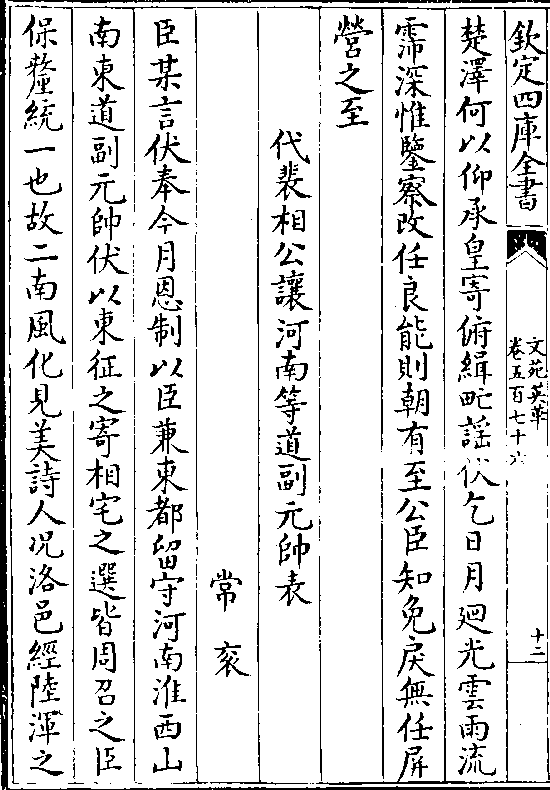 欽定四庫全書
文苑英華
卷五百七十六
十二
楚澤何以仰承皇寄俯緝甿謡伏乞日月廻光雲雨流
霈深惟鑒察改任良能則朝有至公臣知免戾無任屏
營之至
代裴相公讓河南等道副元帥表
常衮
臣某言伏奉今月恩制以臣兼東都留守河南淮西山
南東道副元帥伏以東征之寄相宅之選皆周召之臣
保釐統一也故二南風化見美詩人况洛邑經陸渾之